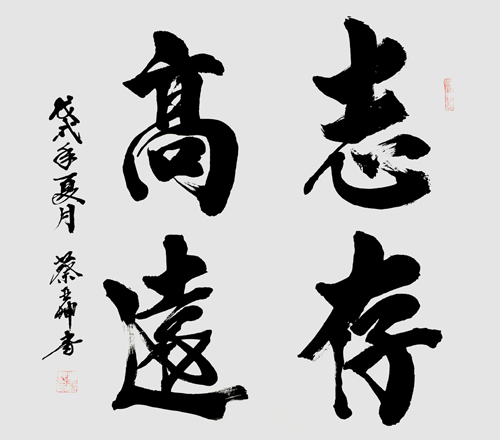 志存
高遠
戊戌年夏月
蔡 書